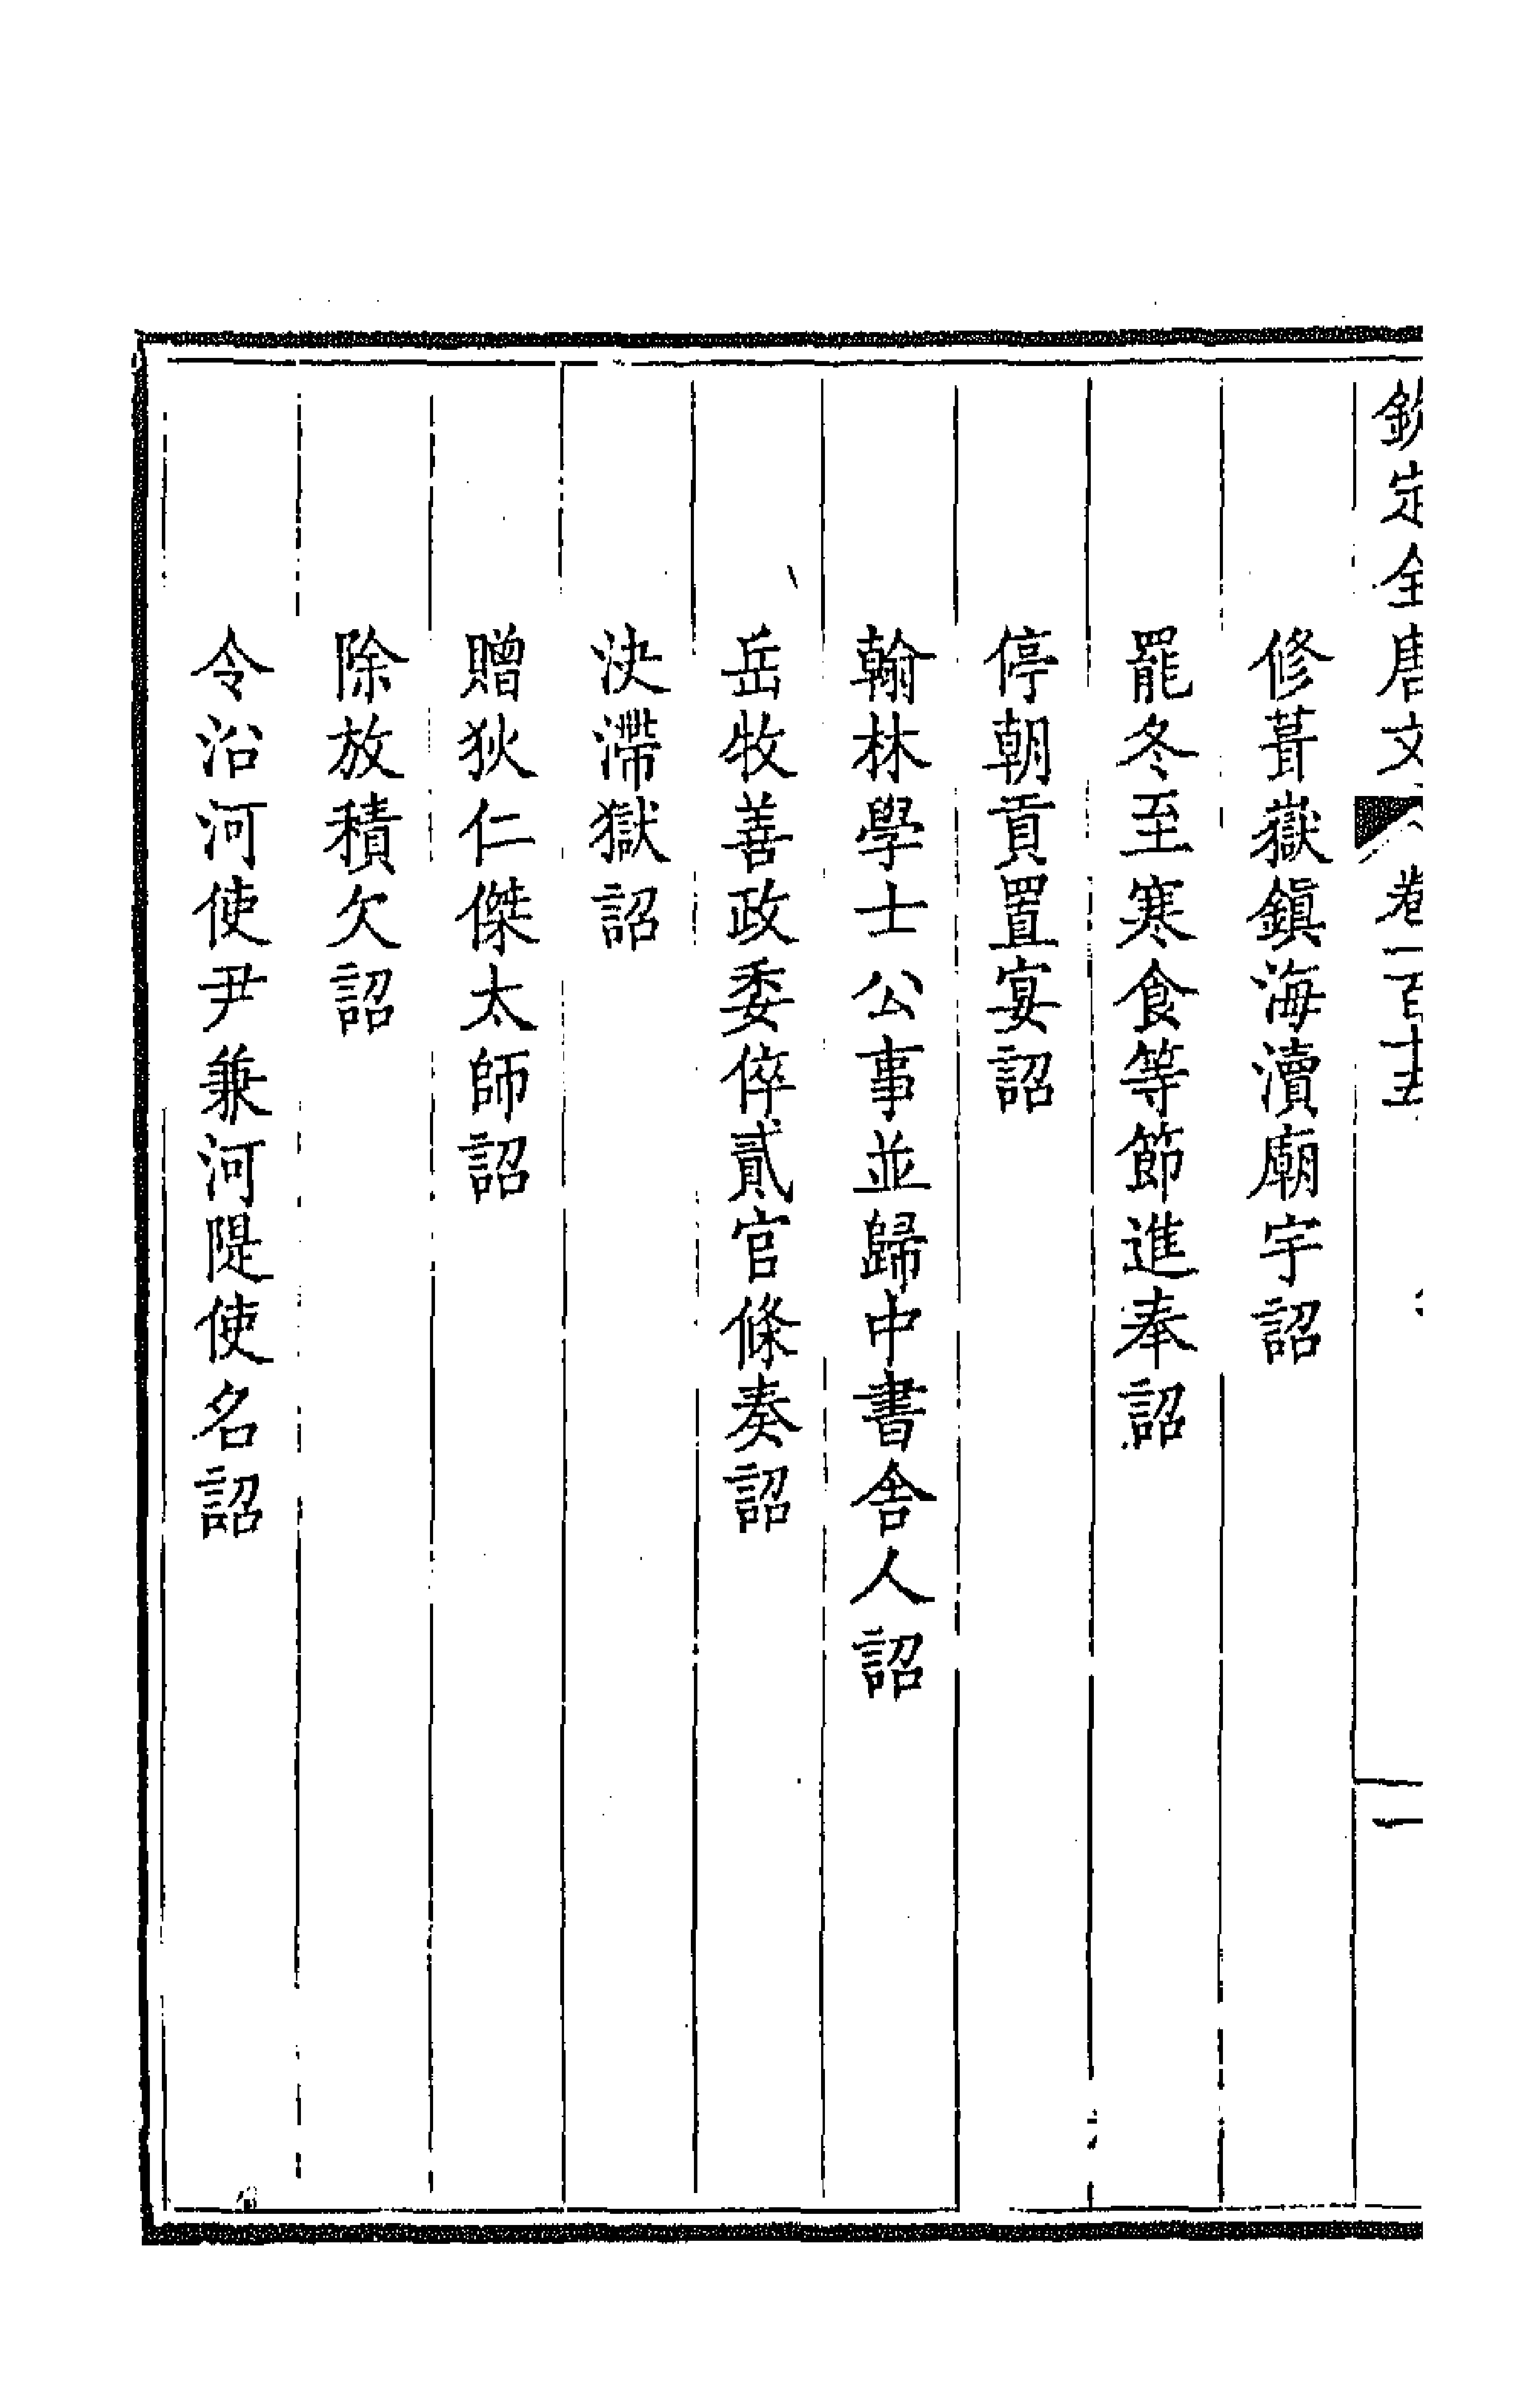 欽定全唐文 卷一百十五 一
修葺嶽鎮海瀆廟宇詔
罷冬至寒食等節進奉詔
停朝貢置宴詔
翰林學士公事並歸中書舍人詔
岳牧善政委倅貳官條奏詔
決滯獄詔
贈狄仁傑太師詔
除放積欠詔
令沿河使尹兼河隄使名詔